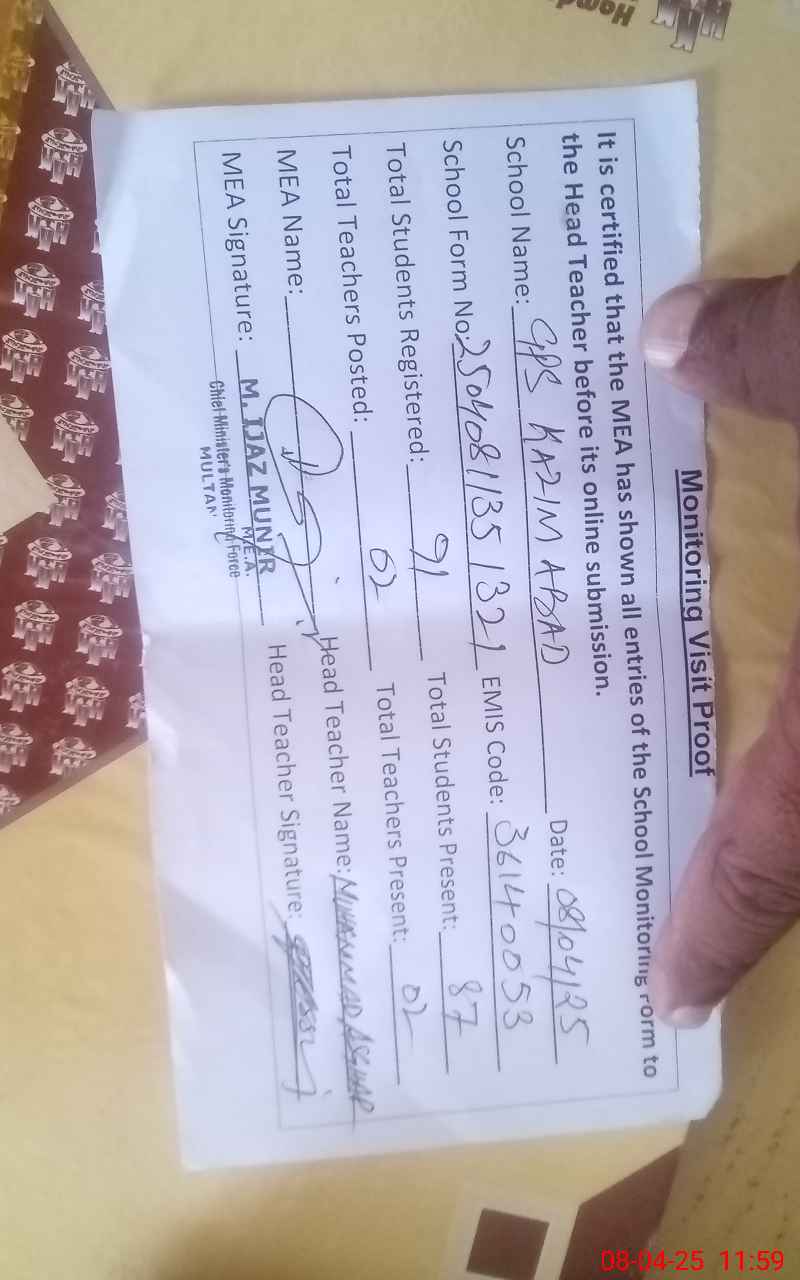 Monitoring Visit Proof
It is certified that the MEA has shown all entries of the School Monitoring Form to
the Head Teacher before its online submission.
School Name: GPS KAZIM ABAD Date: 08/04/25
School Form No: 2504081135 1321 EMIS Code: 36140053
Total Students Registered: 91 Total Students Present: 87
Total Teachers Posted: 02 Total Teachers Present: 02
MEA Name: Head Teacher Name: MUHAMMAD ASGHAR
MEA Signature: Head Teacher Signature:
M. IJAZ MUNIR
M.E.A.
Chief Minister's Monitoring Force
MULTAN
08-04-25 11:59